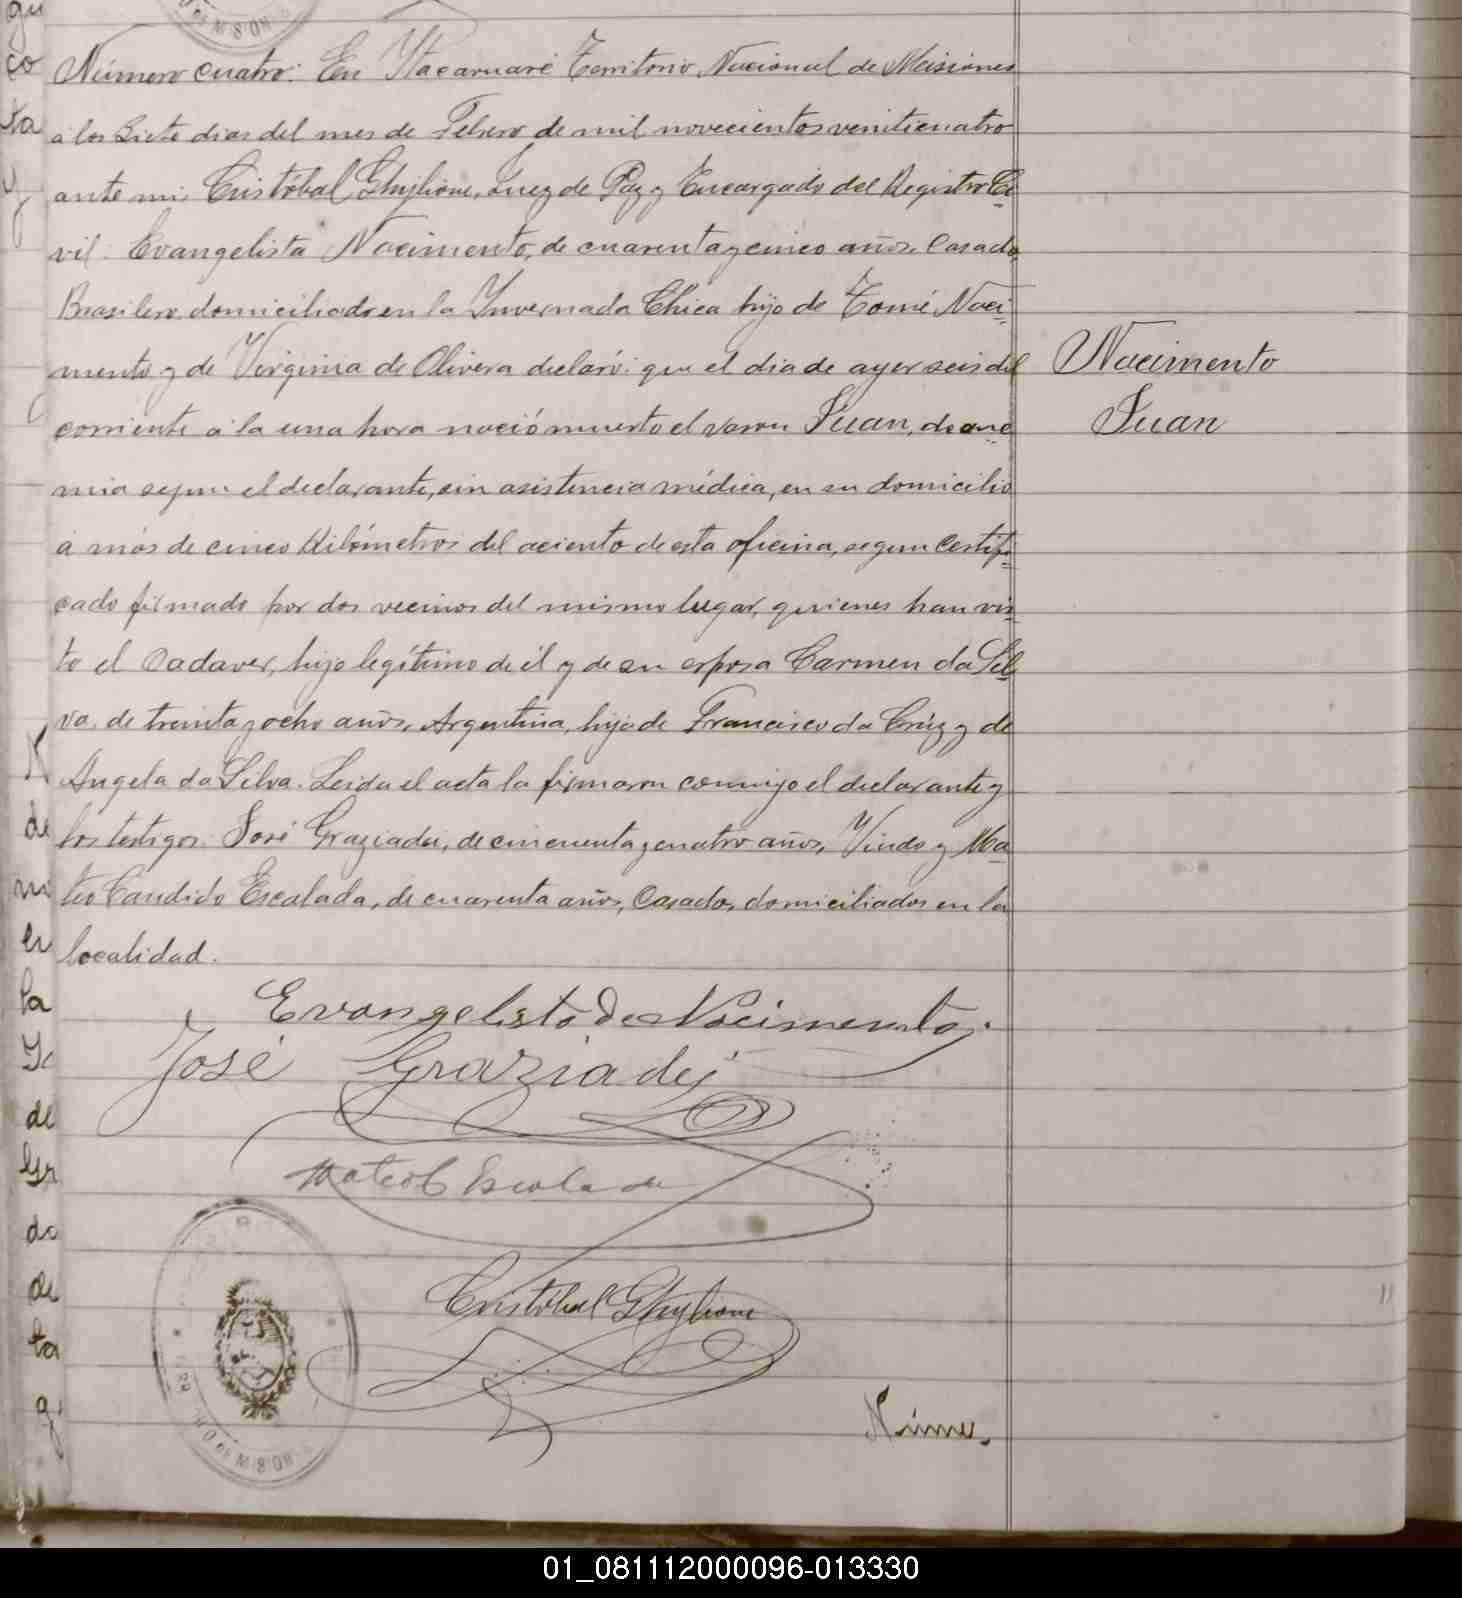 Número cuatro. En Ytacaruaré Territorio Nacional de Misiones
a los Siete dias del mes de Febrero de mil novecientos veniticuatro
ante mi, Cristóbal Ghiglione, Juez de Paz y Encargado del Registro Ci-
vil: Evangelista Nacimento, de cuarenta y cinco años, Casado,
Brasilero, domiciliado en la Invernada Chica hijo de Tomé Naci-
mento y de Virginia de Olivera declaró: que el dia de ayer seis del
corriente á la una hora nació muerto el varon Juan, de ane-
mia segun el declarante, sin asistencia médica, en su domicilio
á más de cinco Kilómetros del aciento de esta oficina, segun Certifi-
cado firmado por dos vecinos del mismo lugar, quienes han vis-
to el Cadaver, hijo legítimo de él y de su esposa Carmen da Sil-
va, de treinta y ocho años, Argentina, hija de Francisco da Crúz y de
Angela da Silva. Leida el acta la firmaron conmigo el declarante y
los testigos: José Graziadei, de cincuenta y cuatro años, Viudo y Ma-
teo Candido Escalada, de cuarenta años, Casado, domiciliados en la
localidad.
Nacimento
Juan
Evangelista De Nacimento
José Graziadei
Mateo C Escalada
Cristóbal Ghiglione
Núme
01_081112000096-013330